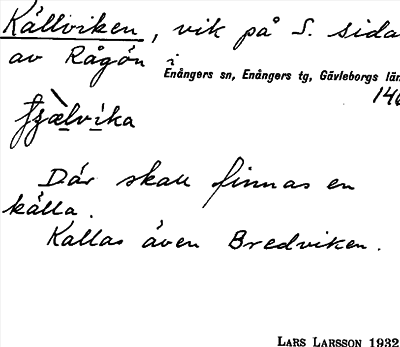 Källviken, vik på S. sida
av Rågön i
Enångers sn, Enångers tg, Gävleborgs län
146
Där skall finnas en
källa.
Kallas även Bredviken.
LARS LARSSON 1932